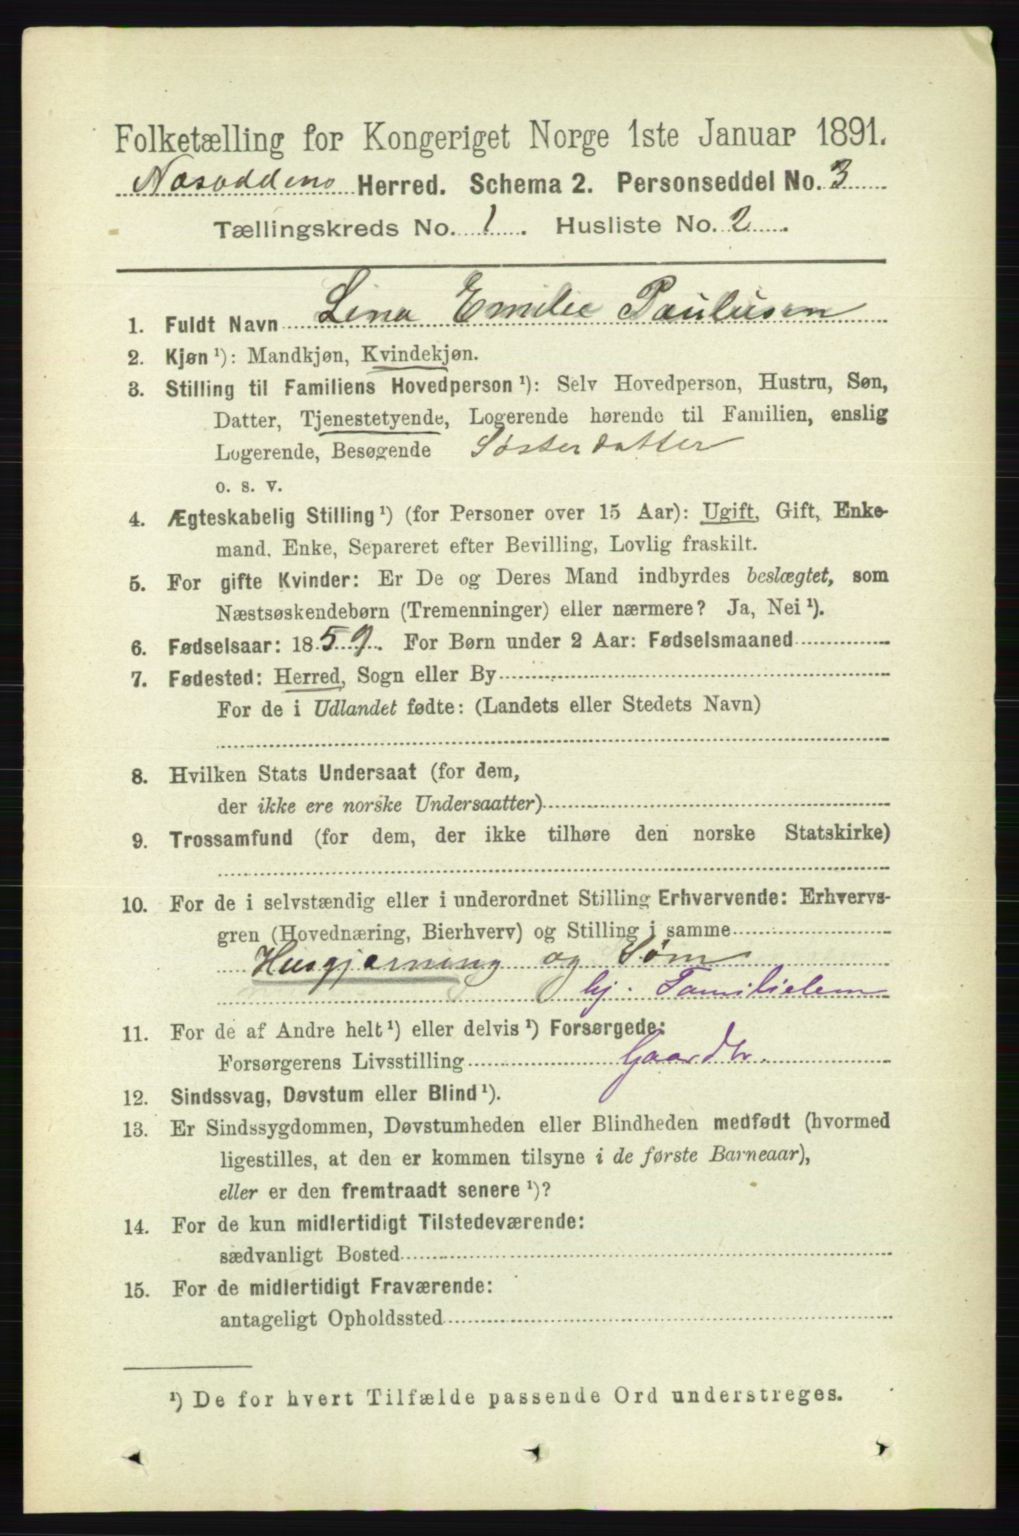 Folketælling for Kongeriget Norge 1ste Januar 1891.
Næsoddens Herred. Schema 2. Personseddel No. 3
Tællingskreds No. 1. Husliste No. 2.
1. Fuldt Navn Lina Emilie Paulusen
2. Kjøn ¹): Mandkjøn, Kvindekjøn.
3. Stilling til Familiens Hovedperson ¹): Selv Hovedperson, Hustru, Søn,
Datter, Tjenestetyende, Logerende hørende til Familien, enslig
Logerende, Besøgende Søsterdatter
o. s. v.
4. Ægteskabelig Stilling ¹) (for Personer over 15 Aar): Ugift, Gift, Enke-
mand, Enke, Separeret efter Bevilling, Lovlig fraskilt.
5. For gifte Kvinder: Er De og Deres Mand indbyrdes beslægtet, som
Næstsøskendebørn (Tremenninger) eller nærmere? Ja, Nei ¹).
6. Fødselsaar: 1859. For Børn under 2 Aar: Fødselsmaaned
7. Fødested: Herred, Sogn eller By
For de i Udlandet fødte: (Landets eller Stedets Navn)
8. Hvilken Stats Undersaat (for dem,
der ikke ere norske Undersaatter)
9. Trossamfund (for dem, der ikke tilhøre den norske Statskirke)
10. For de i selvstændig eller i underordnet Stilling Erhvervende: Erhvervs-
gren (Hovednæring, Bierhverv) og Stilling i samme
Husgjærning og Søm
hj. Familielem
11. For de af Andre helt ¹) eller delvis ¹) Forsørgede:
Forsørgerens Livsstilling Gaardbr.
12. Sindssvag, Døvstum eller Blind ¹).
13. Er Sindssygdommen, Døvstumheden eller Blindheden medfødt (hvormed
ligestilles, at den er kommen tilsyne i de første Barneaar),
eller er den fremtraadt senere ¹)?
14. For de kun midlertidigt Tilstedeværende:
sædvanligt Bosted
15. For de midlertidigt Fraværende:
antageligt Opholdssted
¹) De for hvert Tilfælde passende Ord understreges.